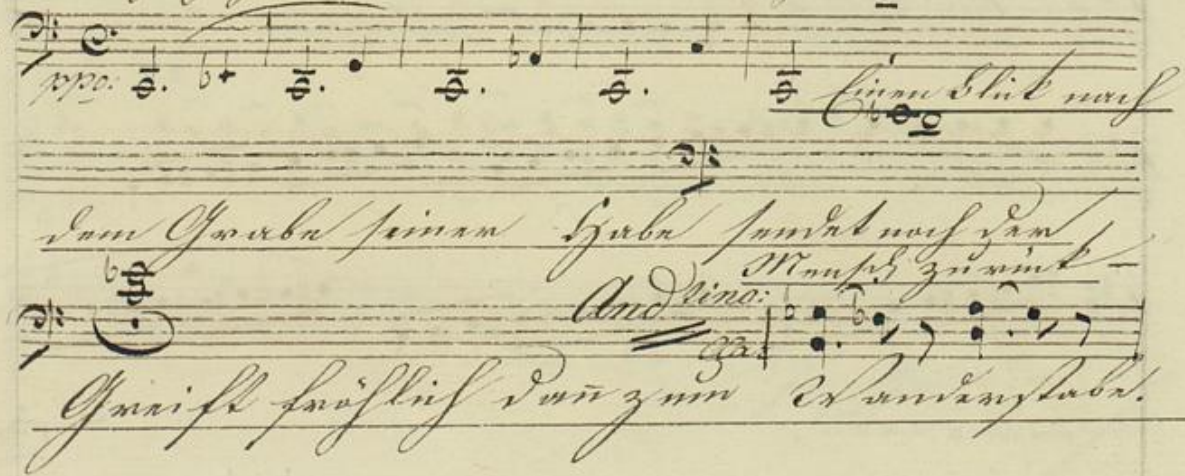 ppo:
Einen Blick nach
dem Grabe seiner Habe sendet noch der
Mensch zurück –
Andtino:
Greift fröhlich dañ zum Wanderstabe.